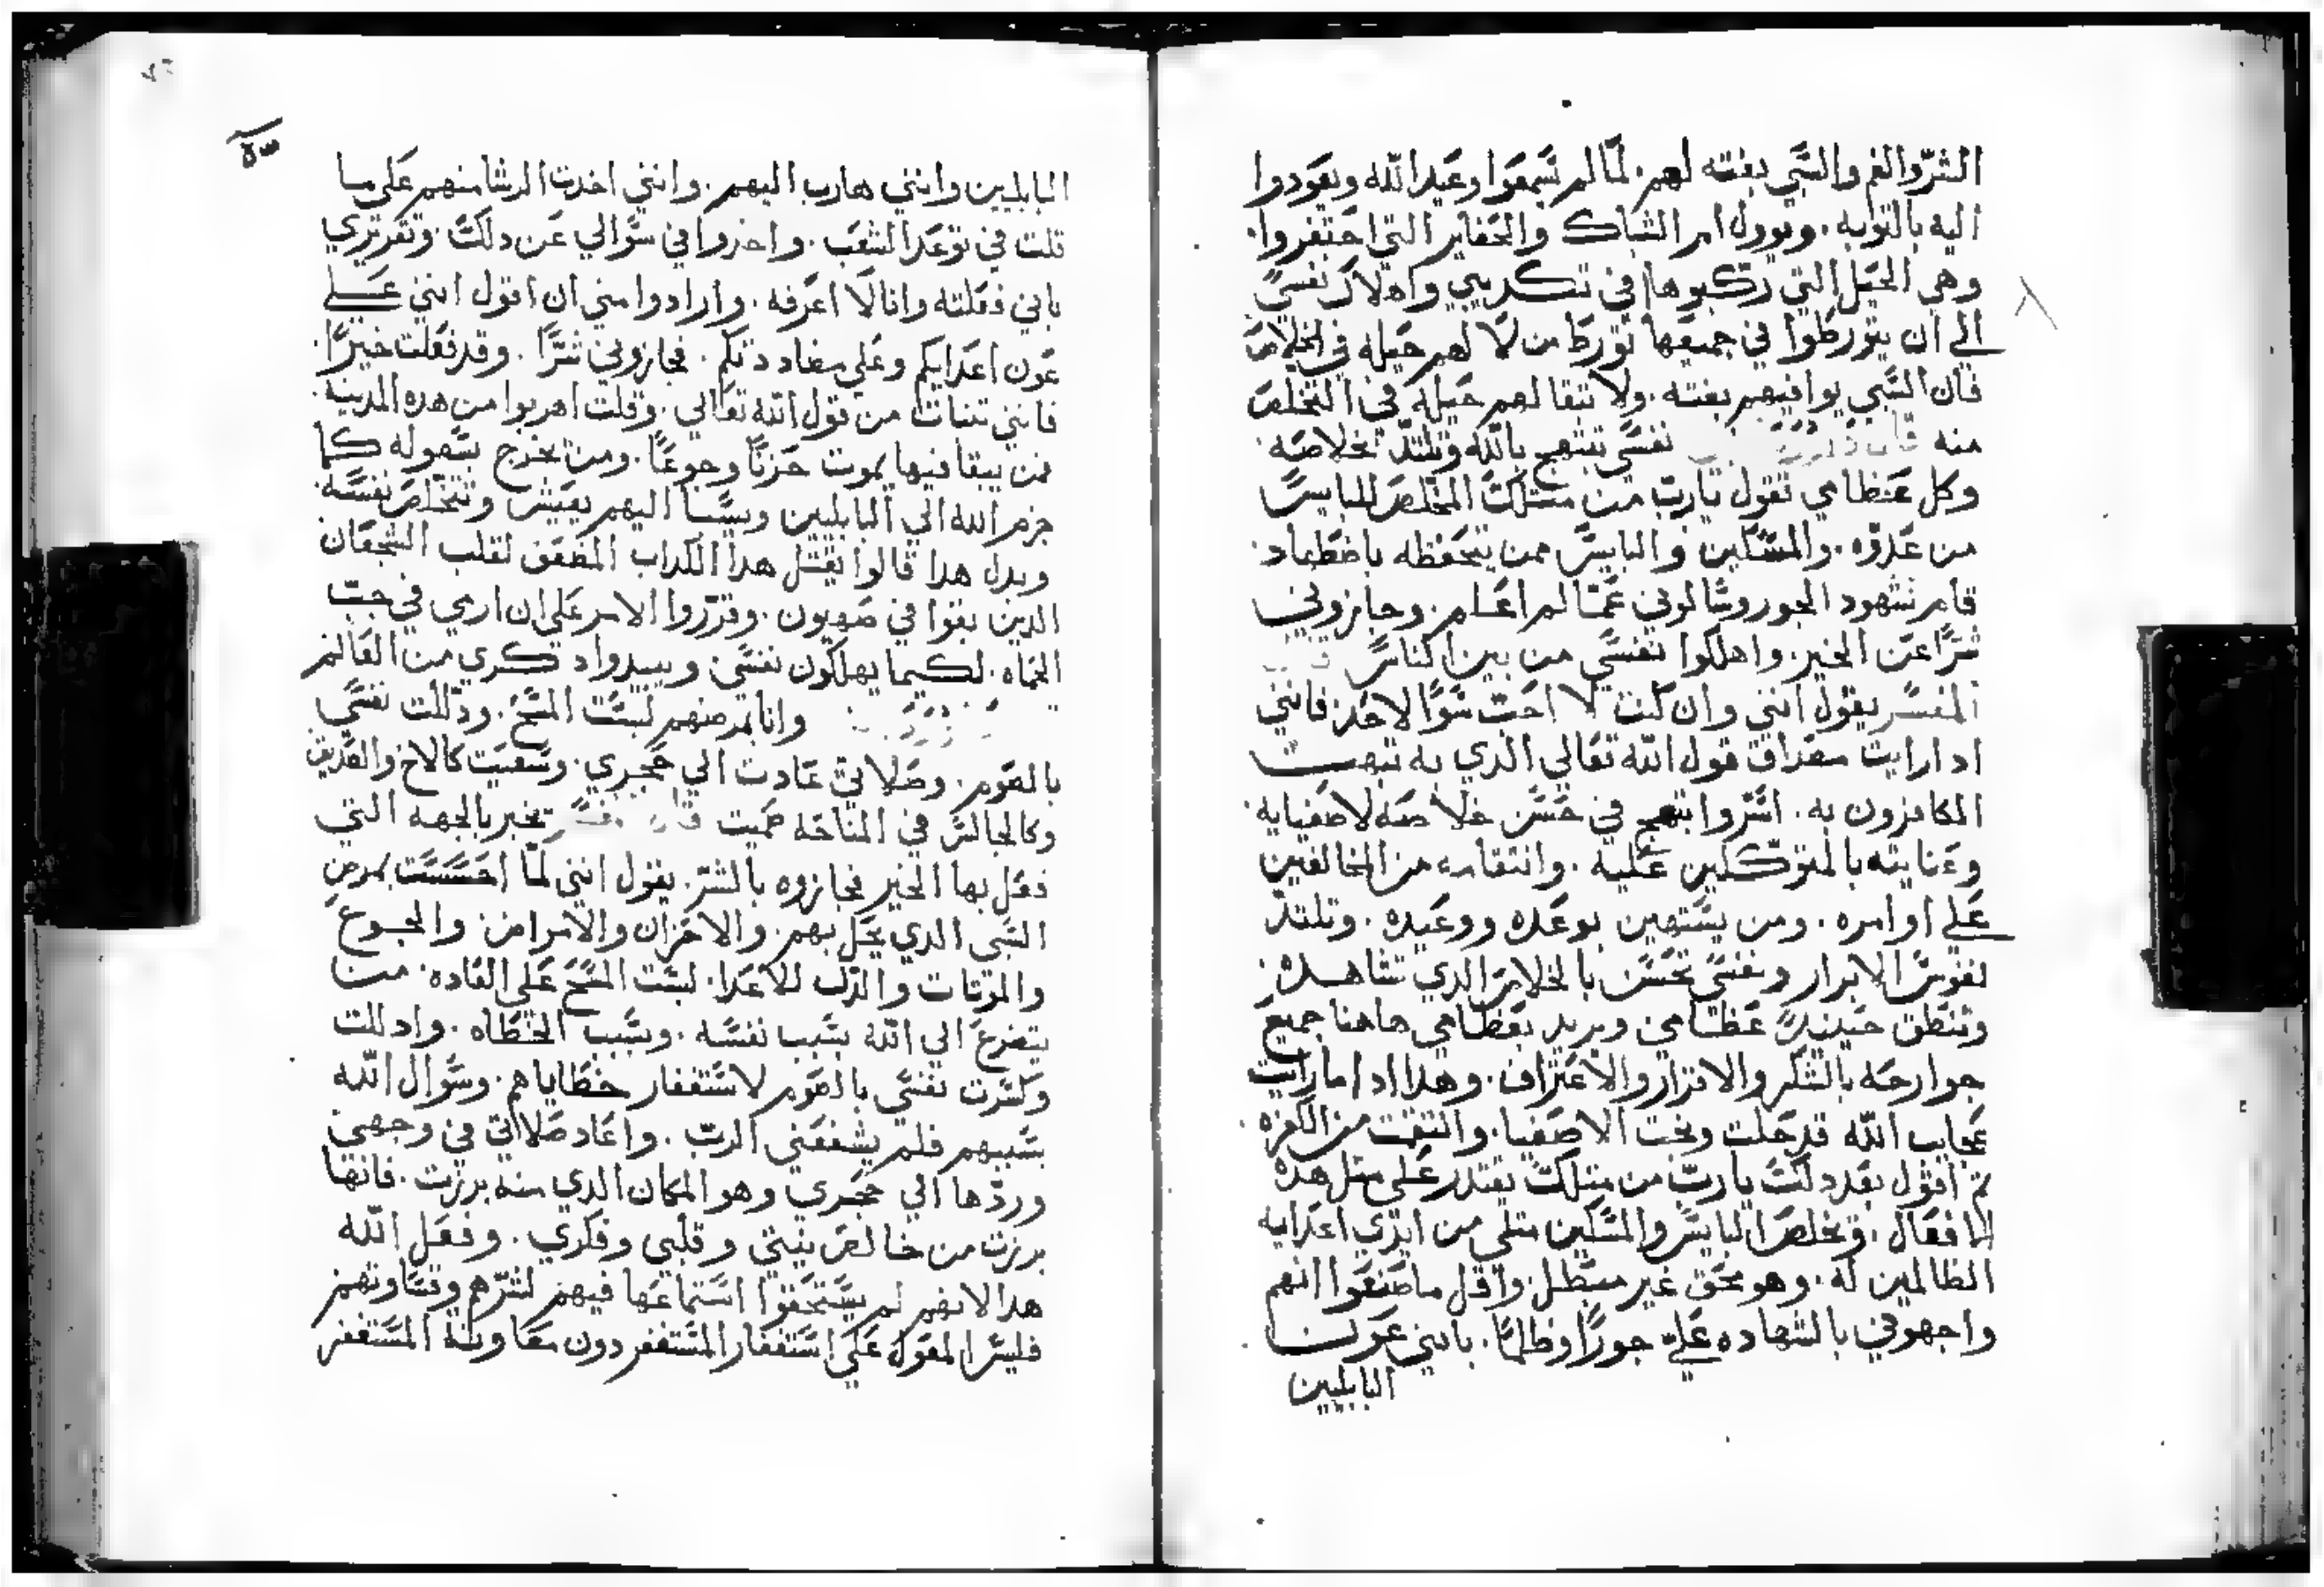 الشرّ والغم والسَّبي بغتته لهم. لمّا لم سَمِعَوا وعَيد اللّه ويعَودوا
اليه بالتوبه. ويوول امر الشباك والحَفاير التي احَتفروا.
وهي الحَيل التي ركبوها في تكريبي واهلاك نفسَي
الي ان يتورطوا في جميعَها تورط من لا لهم حَيله في الخلاص
فان السَّبي يوافيهم بغته. ولا تبقا لهم حَيله في التخلص
منه قال نفسَي تبتهج باللّه وتلتدّ بخلاصَه
وكل عَظامي تقول يارب من مثلك المخلص للبايسَ
من عَدوّه. والمسَكين والبايسَ ممن يتحَفظه باضطهاد.
قام شهود الجور وسَالوني عَمّا لم اعَلم. وجازوني
شرًّا عَن الخير. واهلكوا نفسَي من بين الناسَ قال
المفسَّر يقول انني وان كنت لا احَبّ سَوًّا لاحَد. فانني
ادا رايت مصَداق قول اللّه تعَالي الدي به تبهت
الكافرون به. اسَرّ وابتهج في حَسَن خلاصَه لاصَفيايه
وعَنايته بالمتوكلين عَليه. وانتقامه من المخالفين
عَلي اوامره. ومن يسَتهين بوعَده ووعَيده. وتلتدّ
نفوسَ الابرار ونفسَي تحَسَن بالخلاص الدي تشاهده.
وتنطق حَينيدٍ عَظامي ويريد بعَظامي هاهنا جميعَ
جوارحَه بالشكر والاقرار والاعَتراف. وهدا ادا ما رايت
عَجايب اللّه قد حَلت ونجت الاصَفيا. وانتقمت من الكفره.
ثم اقول بعَد دلك يارب من مثلك يقتدر عَلي مثل هده
الافعَال. وتخلص البايسَ والمسَكين مثلي من ايدي اعَدايه
الظالمين له. وهو محَق غير مبطل. واقل ما صَنعَوا انهم
واجهوني بالشهاده عَليّ جورًا وظلمًا. بانني عَون
البابليين
البابليين وانني هارب اليهم. وانني اخدت الرشا منهم عَلي ما
قلت في توعَد الشعَب. واخدوا في سَوالي عَن دلك. وتقريري
باني فعَلته وانا لا اعَرفه. وارادوا مني ان اقول انني عَلي
عَون اعَدايكم وعَلي مضاددتكم. فجازوني شرًّا. وقد فعَلت خيرًا.
فانني تنبات من قول اللّه تعَالي. وقلت اهربوا من هده المدينه.
فمن يبقا فيها يموت حَزنًا وجوعًا. ومن يخرج بسَهوله كما
جزم اللّه الي البابليين ويسَبا اليهم يعَيش وتتخلص نفسَه.
وبدل هدا قالوا يقتل هدا الكداب المضعَف لقلب الشجعَان
الدين بقوا في صَهيون. وقرّروا الامر عَلي ان اري في جبّ
الحَماه. لكيما يهلكون نفسَي ويبيدوا دكري من العَالم
وانا بمرضهم لبسَت المسَح. ودللت نفسَي
بالصَوم. وصَلاتي عَادت الي حَجري. وسَعَيت كالاخ والقَريب
وكالجالسَ في المناحَه حَميت قال المفسَّر يخبر بالجهه التي
فعَل بها الخير فجازوه بالشرّ. يقول انني لمّا احَسَسَت بمرض
السَّبي الدي يحَل بهم. والاحَزان والامراض. والجوعَ
والموتات والدل للاعَدا. لبسَت المسَح عَلي العَاده. من
يتضرعَ الي اللّه بسَبب نفسَه. وسَبب الخطاه. وادللت
وكسَرت نفسَي بالصَوم لاسَتغفار خطاياهم. وسَوال اللّه
بسَببهم فلم يشفعَني الرب. واعَاد صَلاتي في وجهي
وردّها الي حَجري وهو المكان الدي منه برزت. فانها
برزت من خالصَ نيتي وقلبي وفكري. وفعَل اللّه
هدا لانهم لم يسَتحَقوا اسَتماعَها فيهم لشرّهم وقسَاوتهم
فليسَ المعَول عَلي اسَتغفار المسَتغفر دون معَاونة المسَتغفر